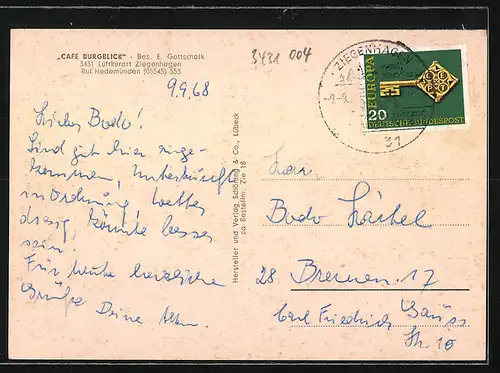 "CAFE BURGBLICK" - Bes. E. Gottschalk
3431 Luftkurort Ziegenhagen
Ruf Hedemünden (05545) 533
3431 004
9.9.68
Liebes Bodo!
Sind gut hier ange-
kommen, Unterkunft
in Ordnung, Wetter
dresig, könnte besser
sein.
Für heute herzliche
Grüße Deine
Hersteller und Verlag Schöning & Co., Lübeck
ca Bestellnr. Zie 18
ZIEGENHAGEN
31
EUROPA
CEPT
20
DEUTSCHE BUNDESPOST
Herrn
Bodo
28 Bremen 17
Carl Friedrich Gauss
Str. 10